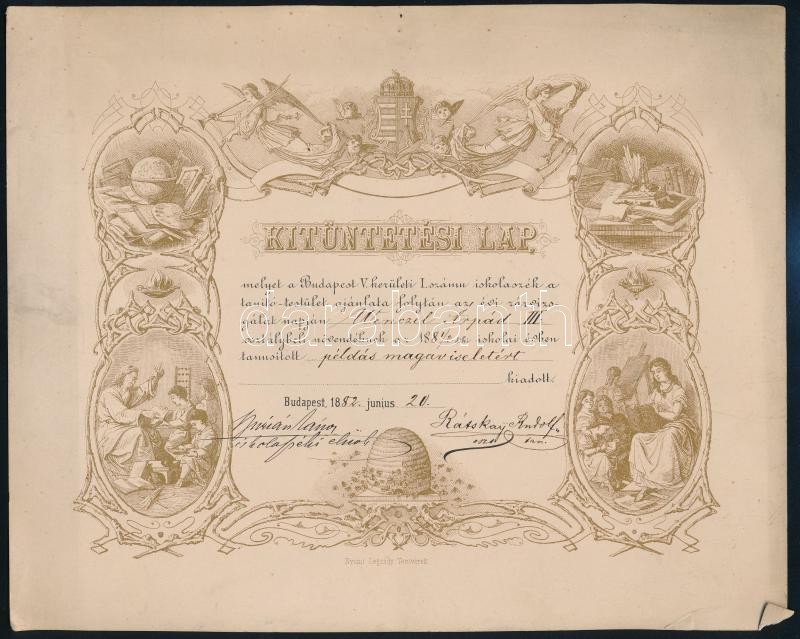 KITÜNTETÉSI LAP,
melyet a Budapest V. kerületi I. számu iskolaszék a
tanitó-testület ajánlata folytán az évi záróvizs
gálat napján Wenczel Árpád III
osztálybeli növendéknek az 1881/2 iskolai évben
tanusitott példás magaviseletért
kiadott.
Budapest, 1882. junius 20.
János Rátskay Rudolf
iskolaszéki elnök
Nyomt. Légrády Testvérek
darabanth